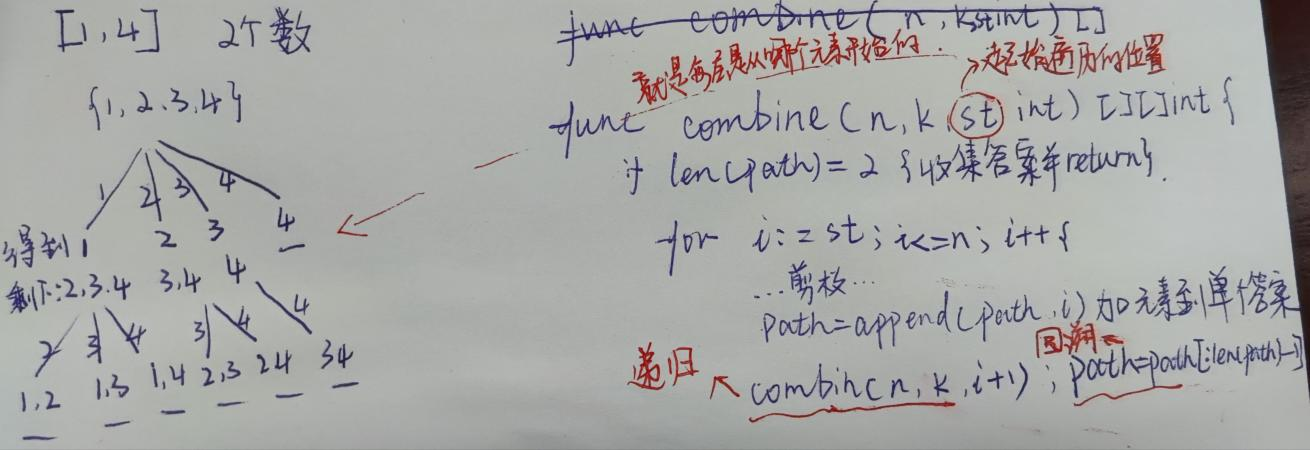 [1,4] 2个数
{1,2,3,4}
1 2 3 4
得到1 2 3 4
剩下:2,3.4 3,4 4
2 3 4 3 4 4
1,2 1,3 1,4 2,3 24 34
func combine( n, k,st int) []
就是每层是从哪个元素开始的.
→起始遍历的位置
func combine(n,k,st int) [][]int {
if len(path)=2 {收集答案并return}.
for i:=st; i<=n; i++{
...剪枝...
path=append(path,i) 加元素到单个答案
递归 回溯
combin(n,k,i+1); path=path[:len(path)-1]